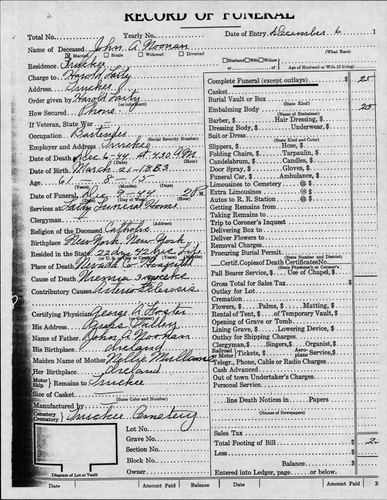 2
RECORD OF FUNERAL
Total No. Yearly No. Date of Entry December 6 1
Name of Deceased John A. Noonan
(What Race)
Married Single Widowed Divorced Husband Wife Widow
Residence Truckee Age of Husband or Wife (if living)
Charge to Harold Laity
Truckee
Order given by Harold Laity
How Secured Phone
If Veteran, State War
Occupation Bartender
(Social Security Number)
Employer and Address Truckee
Date of Death Dec 6-44 at 4:30 A.M.
Date of Birth March 21-1883
Age 61 8 15
(Years) (Months) (Days)
Date of Funeral Dec 9-44 2 P.M.
Services at
Clergyman
Religion of the Deceased Catholic
Birthplace New York, New York
Resided in the State 22
Place of Death Nevada Co. Hospital
Cause of Death Uremia
Contributory Causes Arteriosclerosis
Certifying Physician George A. Foster
His Address Grass Valley
Name of Father John J. Noonan
His Birthplace Ireland
Maiden Name of Mother Nellie
Her Birthplace Ireland
Motor Ship Remains to Truckee
Size of Casket
(State Color and Number)
Manufactured by
Cemetery Crematory Truckee Cemetery
Lot No.
Grave No.
Section No.
Block No.
Owner
Diagram of Lot or Vault
Complete Funeral (except outlays)
Casket
Burial Vault or Box
(State Kind)
Embalming Body 20
(Name of Embalmer)
Barber, Hair Dressing,
Dressing Body, Underwear,
Suit or Dress
(State Kind and Color)
Slippers, Hose,
Folding Chairs, Tarpaulin,
Candelabrum, Candles,
Door Spray, Gloves,
Funeral Car, Ambulance
Limousines to Cemetery
Extra Limousines
Autos to R. R. Station
Getting Remains from
Taking Remains to
Trip to Coroner's Inquest
Delivering Box to
Deliver Flowers to
Removal Charges
Procuring Burial Permit
(State Number and District)
Certif. Copies of Death Certificates No.
(State Physician's or Coroner's)
Pall Bearer Service, Use of Chapel,
Gross Total for Sales Tax
Outlay for Lot
Cremation
Flowers, Palms, Matting,
Rental of Tent, of Temporary Vault,
Opening of Grave or Tomb
Lining Grave, Lowering Device,
Outlay for Shipping Charges
Clergyman, Singers, Organist,
Railroad Motor Tickets, plane Service,
Telegr., Phone, Cable or Radio Charges
Cash Advanced
Out of town Undertaker's Charges
Personal Service
line Death Notices in Papers
(Names of Newspapers)
Sales Tax
Total Footing of Bill
Less
Balance
Entered into Ledger, page or below.
Date Amount Paid Balance Date Amount Paid B